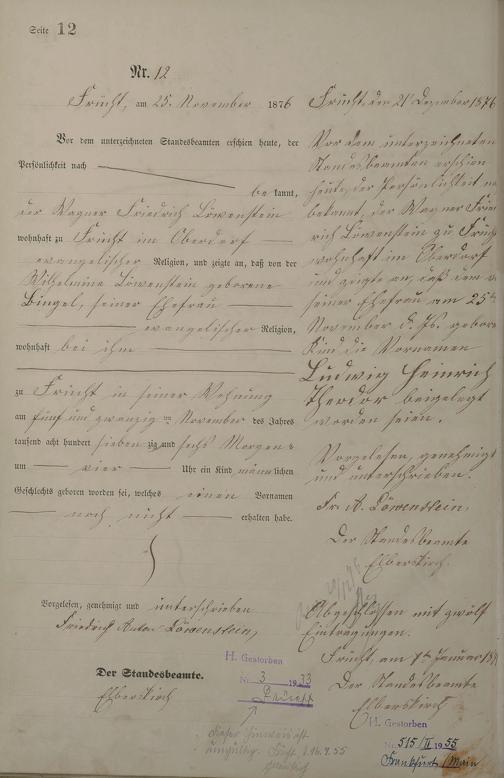 Seite 12
Nr. 12
Frücht, am 25. November 1876
Vor dem unterzeichneten Standesbeamten erschien heute, der
Persönlichkeit nach
bekannt,
der Wagner Friedrich Löwenstein
wohnhaft zu Frücht im Oberdorf
evangelischer Religion, und zeigte an, daß von der
Wilhelmine Löwenstein geborene
Bingel, seiner Ehefrau
evangelischer Religion,
wohnhaft bei ihm
zu Frücht in seiner Wohnung
am fünf und zwanzig ten November des Jahres
tausend acht hundert siebenzig und sechs Morgens
um vier Uhr ein Kind männlichen
Geschlechts geboren worden sei, welches einen Vornamen
noch nicht erhalten habe.
Vorgelesen, genehmigt und unterschrieben
Friedrich Anton Löwenstein,
Der Standesbeamte.
Elberskirch
Frücht, den 21 Dezember 1876
Vor dem unterzeichneten
Standesbeamten erschien
heute, der Persönlichkeit na
bekannt, der Wagner Fried
rich Löwenstein zu Frücht
wohnhaft im Oberdorf
und zeigte an, daß dem v
seiner Ehefrau am 25ten
November d. Js. geboren
Kind die Vornamen
Ludwig Heinrich
Theodor beigelegt
worden seien.
Vorgelesen, genehmigt
und unterschrieben.
Fr. A. Löwenstein,
Der Standesbeamte
Elberskirch.
Abgeschlossen mit zwölf
Eintragungen.
Frücht, am 1ten Januar 187
Der Standesbeamte
Elberskirch
H. Gestorben
Nr. 3 1933
Frücht
dieser Hinweis ist
ungültig. 16.9.55
H. Gestorben
Nr. 515/II 1955
Frankfurt/Main